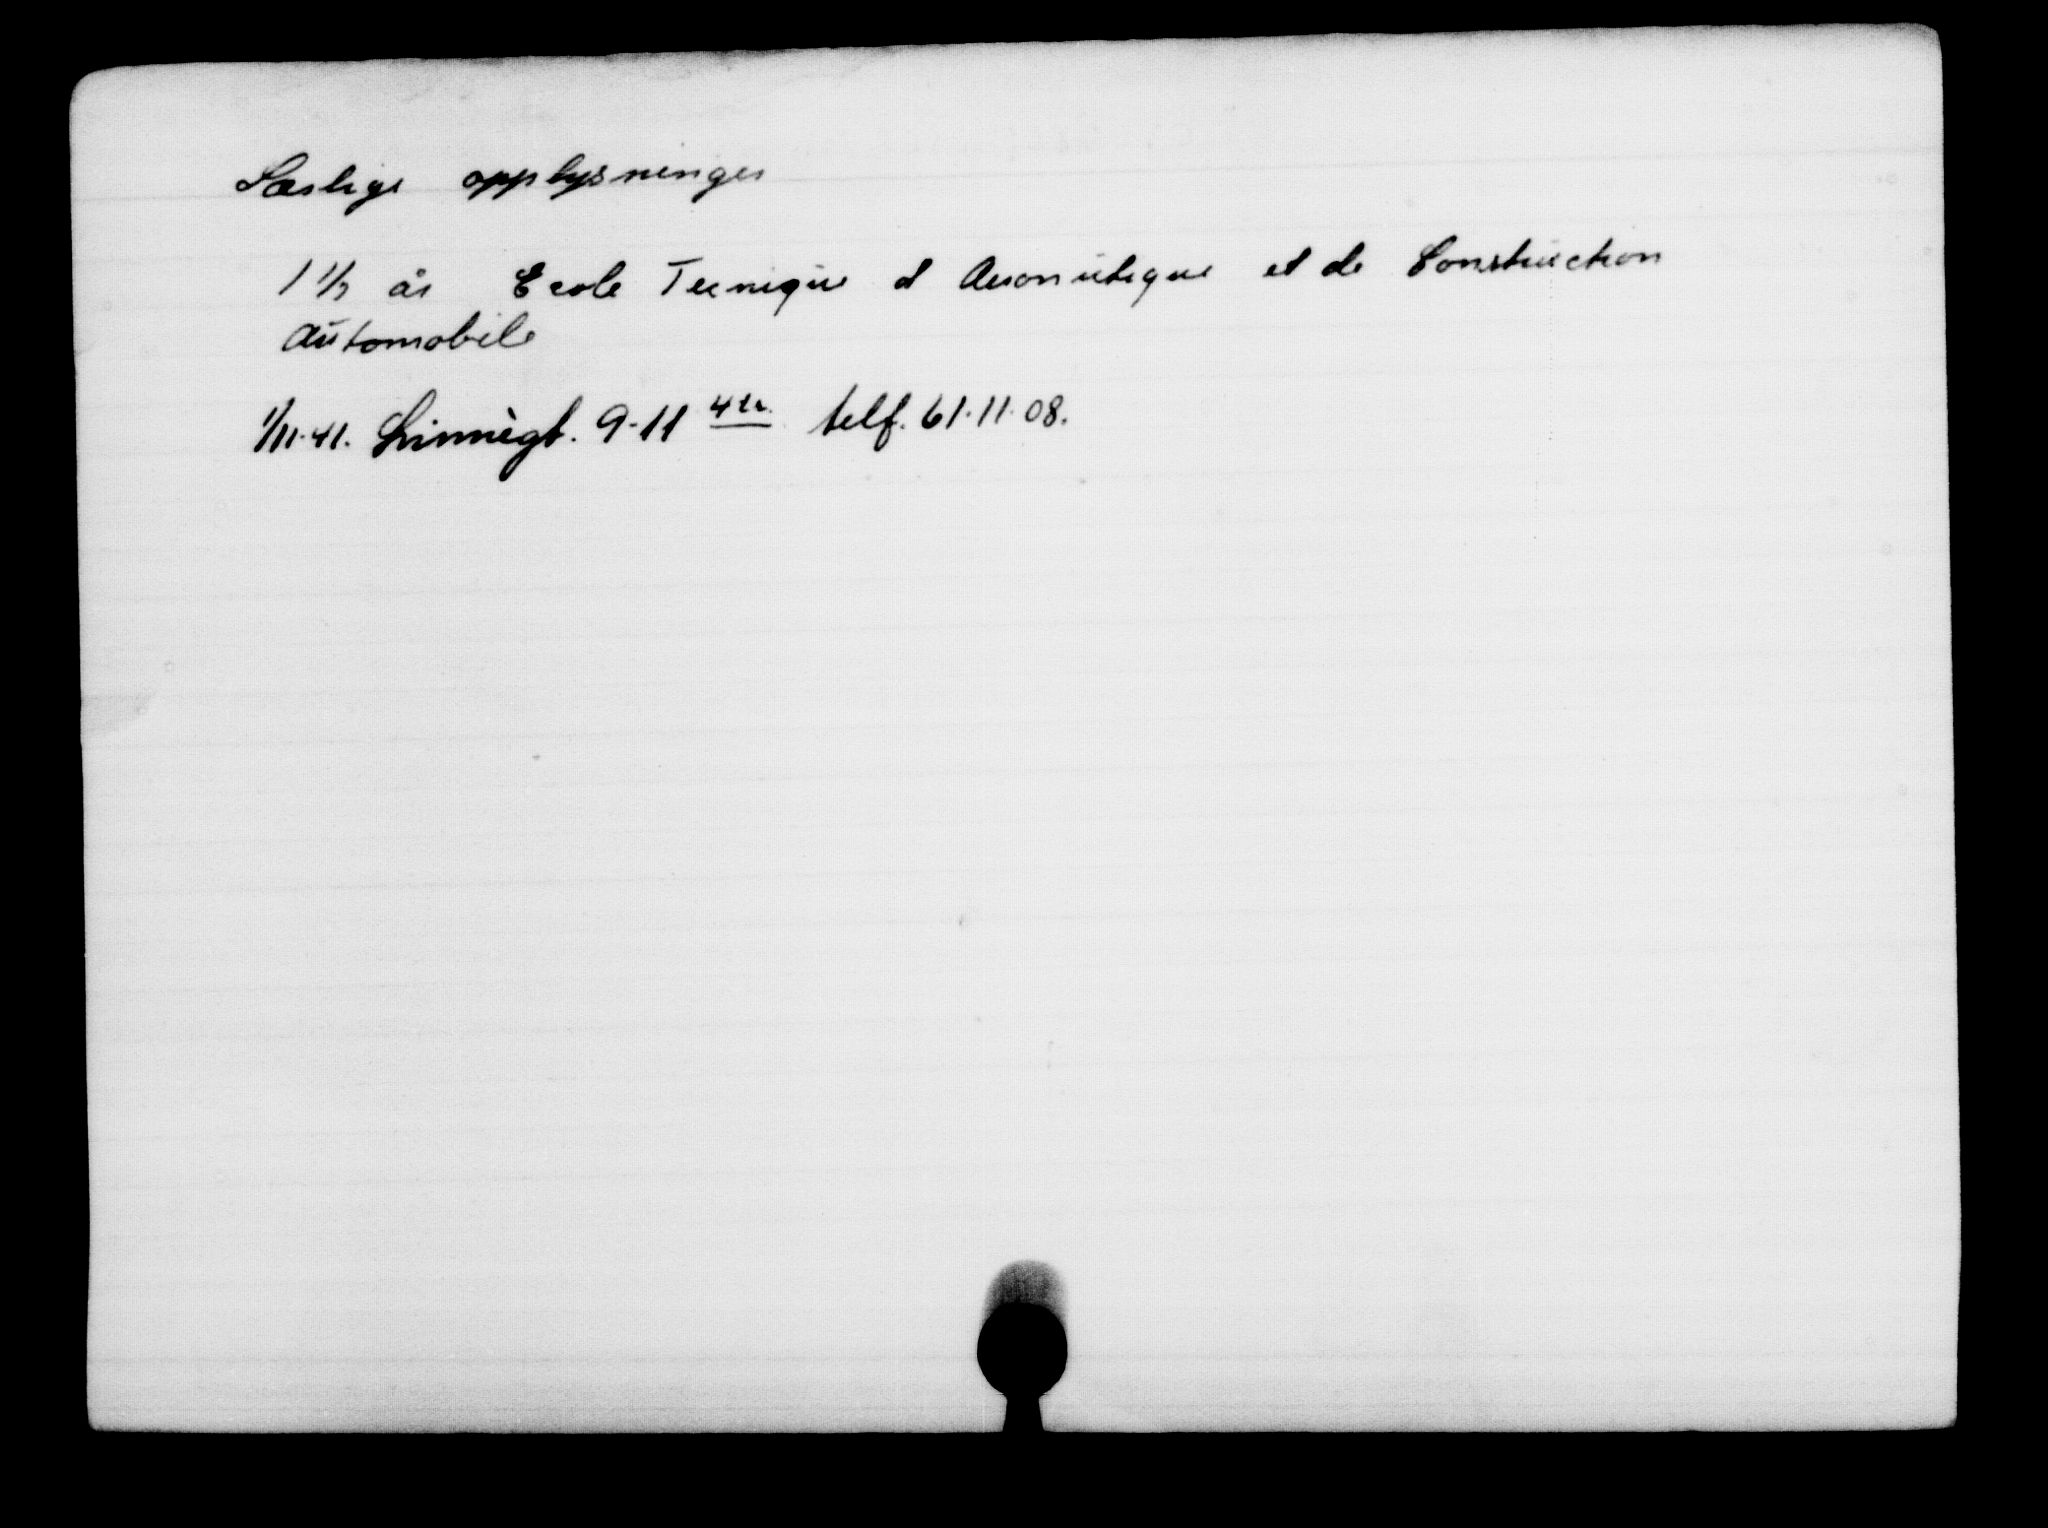 Særlige opplysninger
1 1/2 år Ecole Tecnique d Aeronutique et de Construction
Automobile
1/11-41. Linnégt. 9-11 4 tr. telf. 61.11.08.